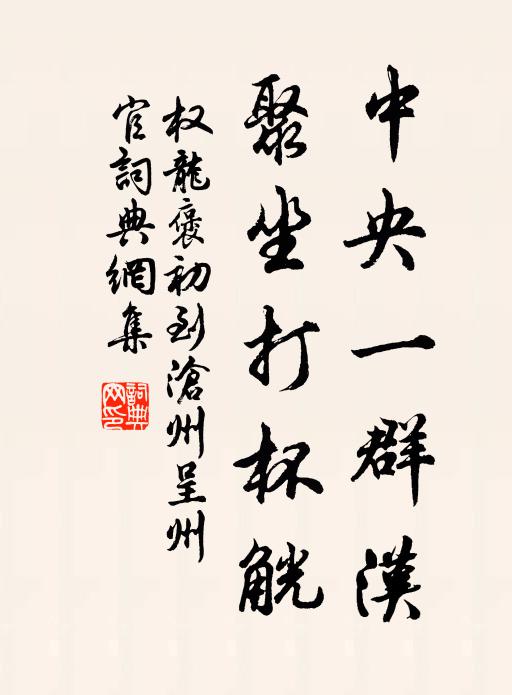 中央一群漢
聚坐打杯觥
权龍褒初到滄州呈州
官詞典網集
詞典
網印